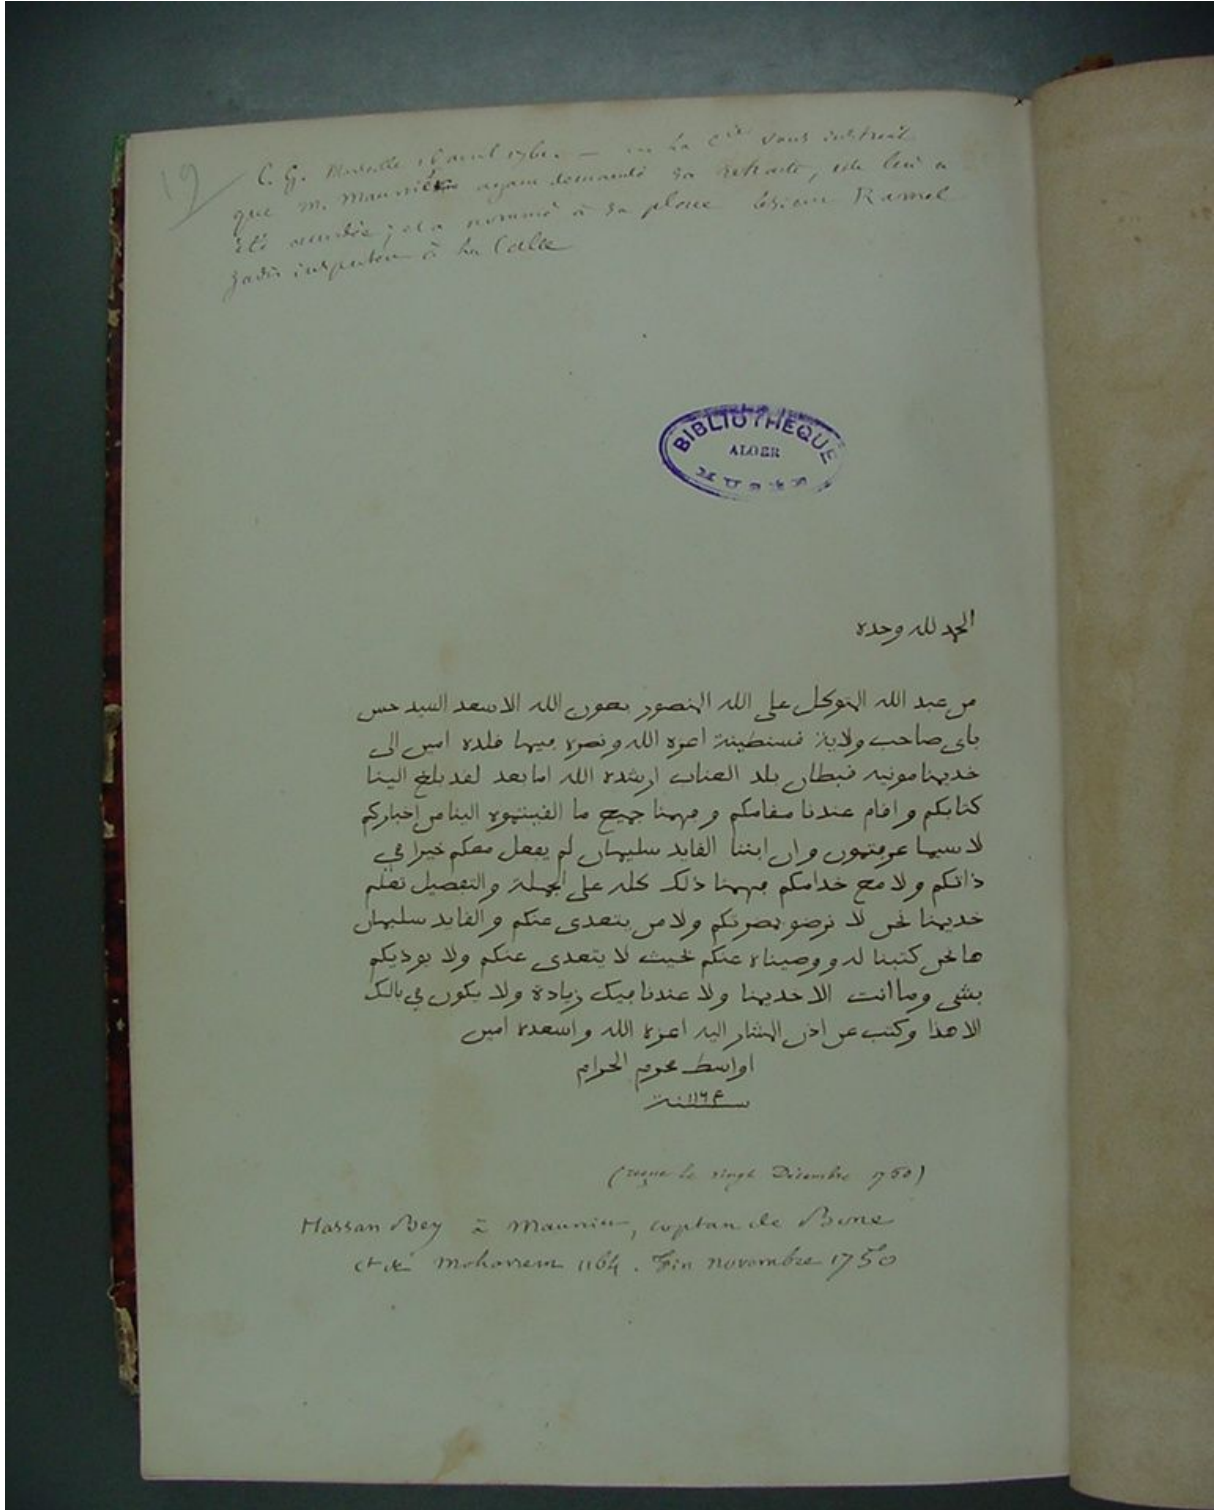 12
C. G. Marseille 16 avril 1761. — la Cie vous instruit
que M. Maunier ayant demandé sa retraite, elle lui a
été accordée; et a nommé à sa place le sieur Ramel
jadis inspecteur à la Calle
BIBLIOTHEQUE
ALGER
الحمد لله وحده
من عبد الله المتوكل على الله المنصور بعون الله الاسعد السيد حسن
باي صاحب ولاية فسنطينة اعزه الله ونصره فيما فلده امين الى
خديمنا مونيه فبطان بلد العناب ارشده الله اما بعد لفد بلغ الينا
كتابكم وافام عندنا مفامكم وفهمنا جميع ما الفيتموه الينا من اخباركم
لا سيما عرفتمون وان ابننا الفايد سليمان لم يفعل معكم خيرا في
ذاتكم ولا مع خدامكم فهمنا ذلك كله على الجملة والتفصيل تعلم
خديمنا نحن لا نرضو بضرتكم ولا من يتعدى عنكم والفايد سليمان
ها نحن كتبنا له ووصيناه عنكم بحيث لا يتعدى عنكم ولا يوذيكم
بشي وما انت الا خديمنا ولا عندنا فيك زيادة ولا يكون في بالك
الا هذا وكتب عن اذن المشار اليه اعزه الله واسعده امين
اواسط محرم الحرام
سنة ١١٦٤
(reçue le vingt Décembre 1750)
Hassan Bey à Maunier, captan de Bone
Mohorrem 1164. Fin novembre 1750